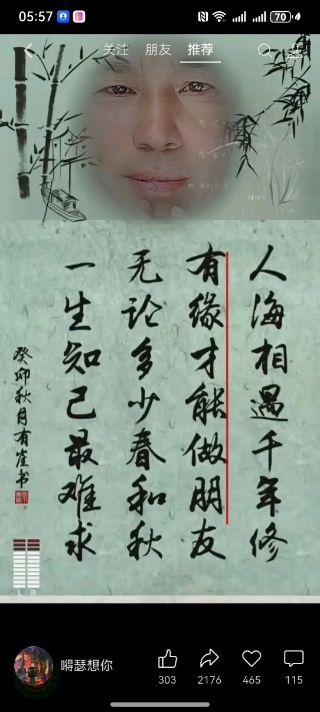 05:57
70
关注 朋友 推荐
人海相遇千年修
有缘才能做朋友
无论多少春和秋
一生知己最难求
癸卯秋月有崖书
L R
嘚瑟想你
303 2176 465 115